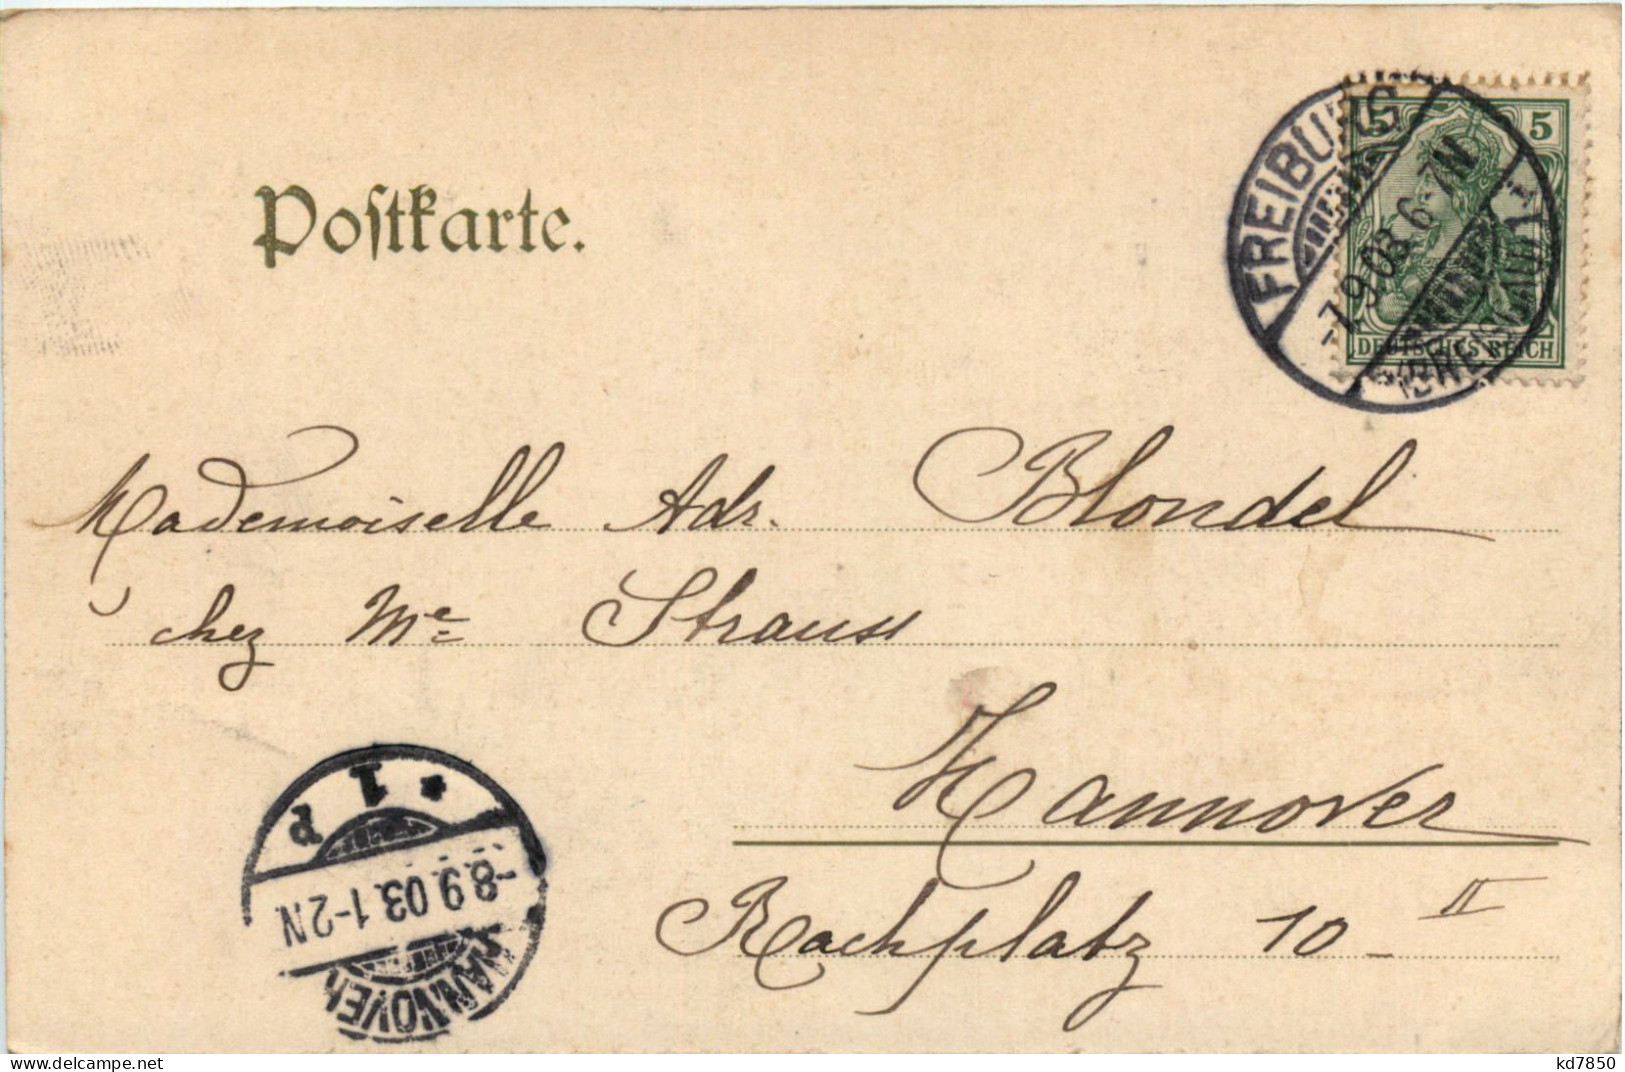 Postkarte.
5 5
DEUTSCHES REICH
FREIBURG
7.9.03. 6-7N
Mademoiselle Adr. Blondel
chez Me Strauss
Hannover
Rachplatz 10 - II
HANNOVER
-8.9.03.1-2N
* 1 P
www.delcampe.net
kd7850